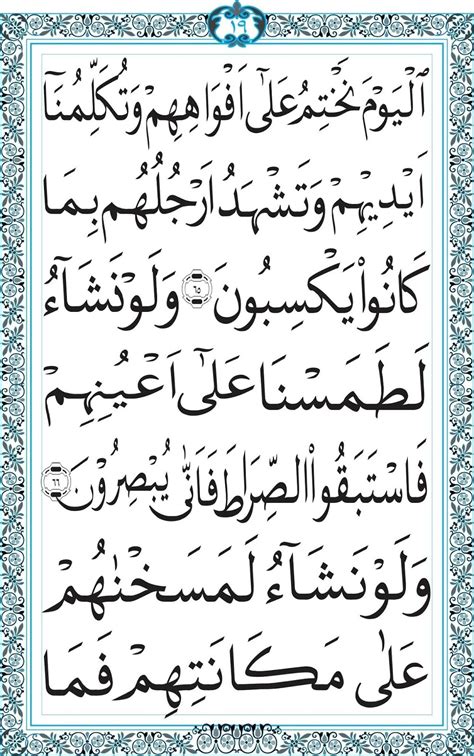 ١٩
اَلْيَوْمَ نَخْتِمُ عَلٰٓى اَفْوَاهِهِمْ وَتُكَلِّمُنَٓا
اَيْد۪يهِمْ وَتَشْهَدُ اَرْجُلُهُمْ بِمَا
كَانُوا يَكْسِبُونَ ٦٥ وَلَوْ نَشَٓاءُ
لَطَمَسْنَا عَلٰٓى اَعْيُنِهِمْ
فَاسْتَبَقُوا الصِّرَاطَ فَاَنّٰى يُبْصِرُونَ ٦٦
وَلَوْ نَشَٓاءُ لَمَسَخْنَاهُمْ
عَلٰى مَكَانَتِهِمْ فَمَا